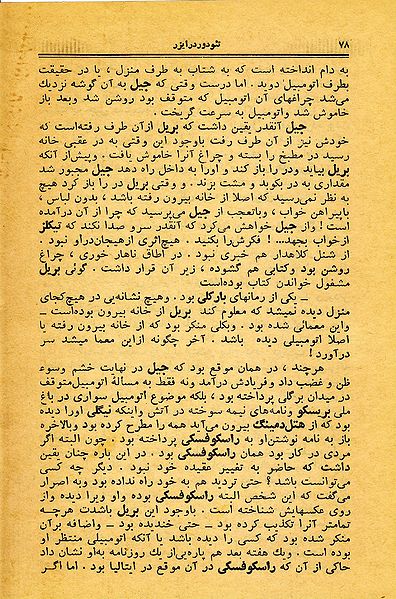 ۷۸
تئودور درایزر
به دام انداخته است که به شتاب به طرف منزل ، یا در حقیقت
بطرف اتومبیل دوید . اما درست وقتی که جیل به آن گوشه نزدیك
می‌شد چراغهای آن اتومبیل که متوقف بود روشن شد وبعد باز
خاموش شد واتومبیل به سرعت گریخت .
جیل آنقدر یقین داشت که بریل از آن طرف رفته‌است که
خودش نیز از آن طرف رفت باوجود این وقتی در به عقبی خانه
رسید در مطبخ را بسته و چراغ آنرا خاموش یافت . وپیش‌از آنکه
بریل بیاید ودر را باز کند و اورا به داخل راه دهد جیل مجبور شد
مقداری به در بکوبد و مشت بزند . و وقتی بریل در را باز کرد هیچ
به نظر نمی‌رسید که اصلا از خانه بیرون رفته باشد ، بدون لباس ،
باپیراهن خواب ، وباتعجب از جیل می‌پرسید که چرا از آن درآمده
است ! واز جیل خواهش می‌کرد که آنقدر سرو صدا نکند که تیکلز
ازخواب بجهد...! فکرش‌را بکنید . هیچ‌اثری ازهیجان‌دراو نبود .
از شنل کلاهدار هم خبری نبود . در اطاق ناهار خوری ، چراغ
روشن بود وکتابی هم گشوده ، زیر آن قرار داشت . گوئی بریل
مشغول خواندن کتاب بوده‌است
ـ یکی از رمانهای بارکلی بود . وهیچ نشانه‌یی در هیچ‌کجای
منزل دیده نمیشد که معلوم کند بریل از خانه بیرون بوده‌است ـ
واین معمائی شده بود . وبکلی منکر بود که از خانه بیرون رفته یا
اصلا اتومبیلی دیده باشد . آخر چگونه ازاین معما میشد سر
درآورد !
هرچند ، در همان موقع بود که جیل در نهایت خشم وسوء
ظن و غضب داد وفریادش درآمد ونه فقط به مسألهٔ اتومبیل‌متوقف
در میدان برگلی پرداخته بود ، بلکه موضوع اتومبیل سواری در باغ
ملی بریسکو ونامه‌های نیمه سوخته در آتش واینکه نیگلی اورا دیده
بود که از هتل‌دمینگ بیرون می‌آید همه را مطرح کرده بود وبالاخره
باز به نامه نوشتن‌او به راسکوفسکی پرداخته بود . چون البته اگر
مردی در کار بود همان راسکوفسکی بود . در این باره چنان یقین
داشت که حاضر به تغییر عقیده خود نبود . دیگر چه کسی
می‌توانست باشد ؟ حتی تردید هم به خود راه نداده بود وبه اصرار
می‌گفت که این شخص البته راسکوفسکی بوده واو ویرا دیده واز
روی عکسهایش شناخته است . باوجود این بریل باشدت هرچه
تمامتر آنرا تکذیب کرده بود ـ حتی خندیده بود ـ واضافه برآن
منکر شده بود که کسی را دیده باشد یا آنکه اتومبیلی منتظر او
بوده است . ویك هفته بعد هم پاره‌یی‌از یك روزنامه به‌او نشان داد
حاکی از آن که راسکوفسکی در آن موقع در ایتالیا بود . اما اگر